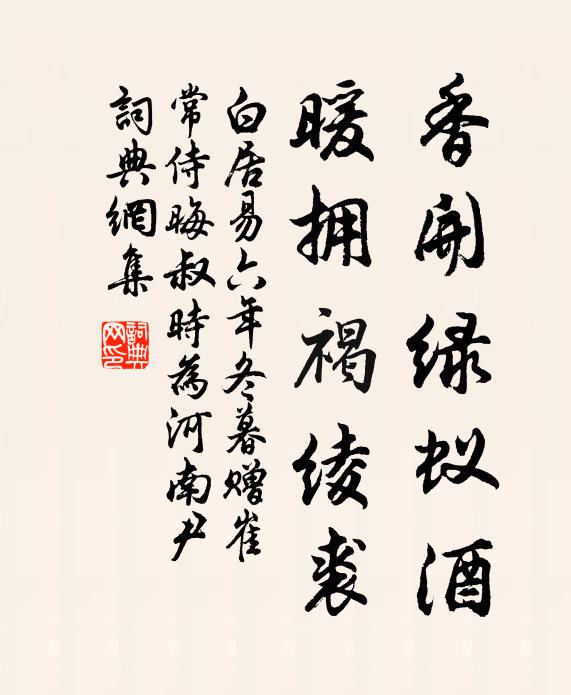 香開绿蚁酒
暖拥褐绫裘
白居易六年冬暮赠崔
常侍晦叔時為河南尹
詞典網集
詞典网印